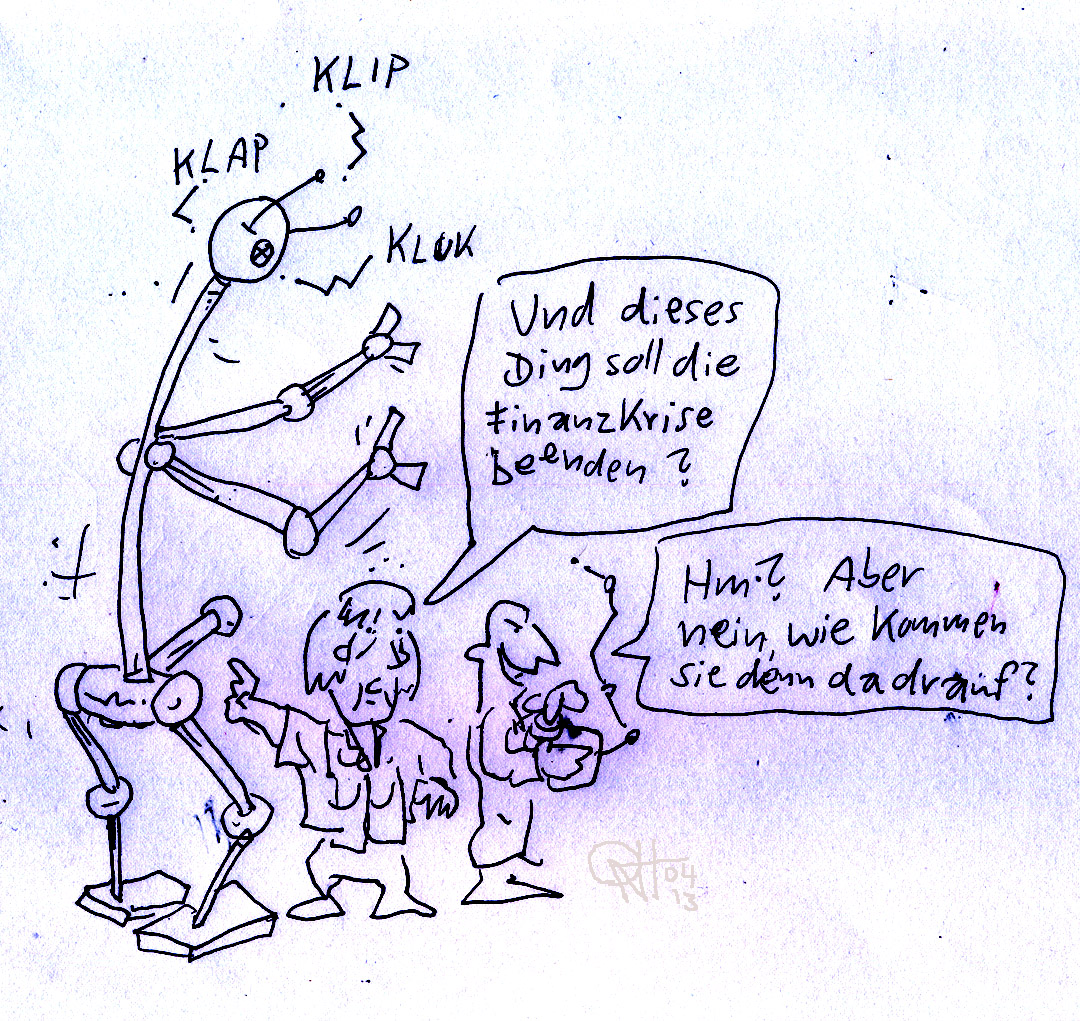 KLIP
KLAP
KLOK
Und dieses
Ding soll die
Finanzkrise
beenden?
Hm? Aber
nein, wie kommen
sie denn da drauf?
04
13